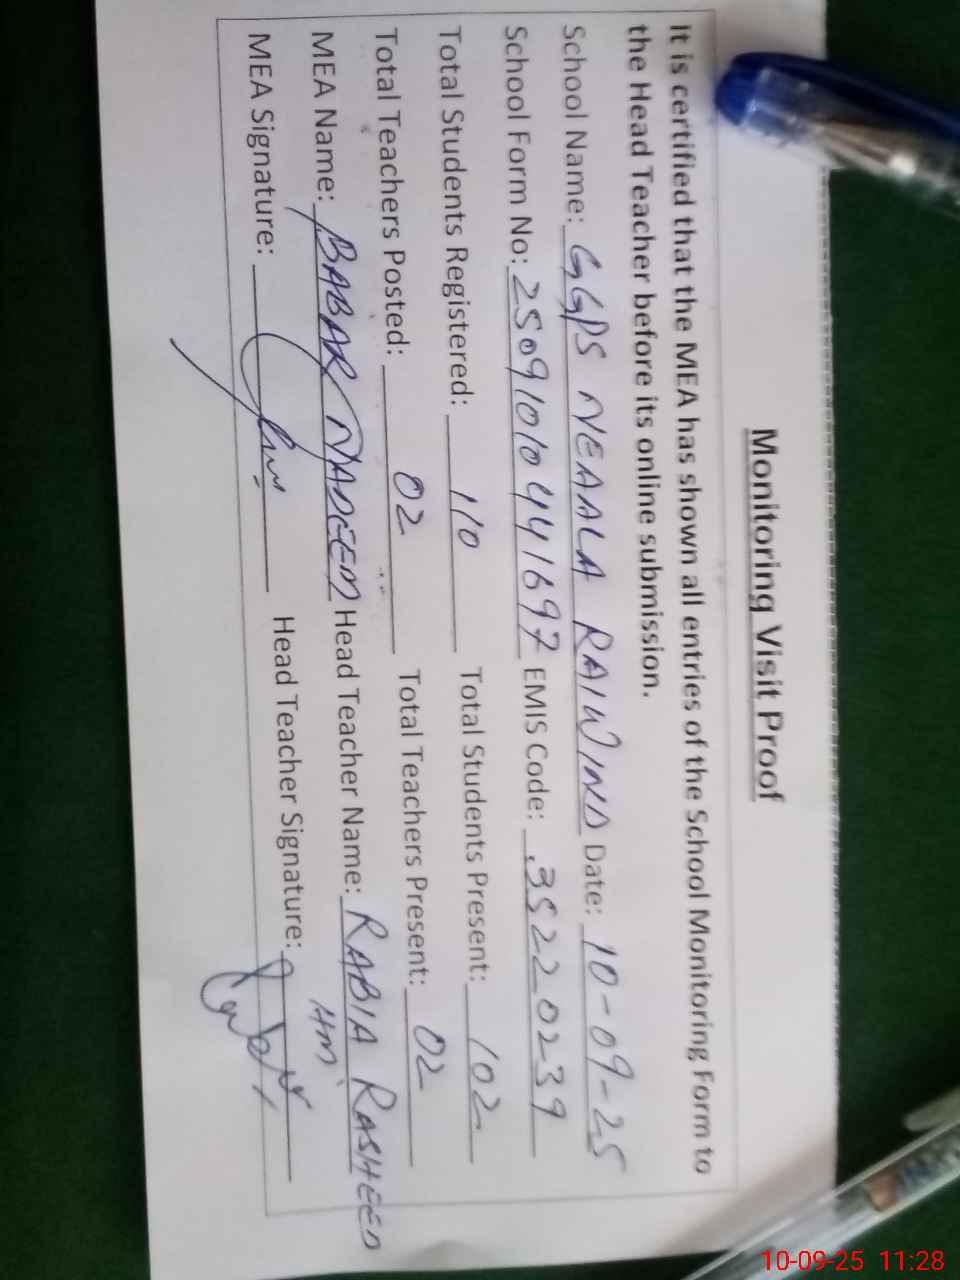 Monitoring Visit Proof
It is certified that the MEA has shown all entries of the School Monitoring Form to
the Head Teacher before its online submission.
School Name: GGPS NEAALA RAIWIND Date: 10-09-25
School Form No: 25091010441697 EMIS Code: 35220239
Total Students Registered: 110 Total Students Present: 102
Total Teachers Posted: 02 Total Teachers Present: 02
MEA Name: BABAR NADEEM Head Teacher Name: RABIA RASHEED
HM
MEA Signature: Head Teacher Signature:
10-09-25 11:28